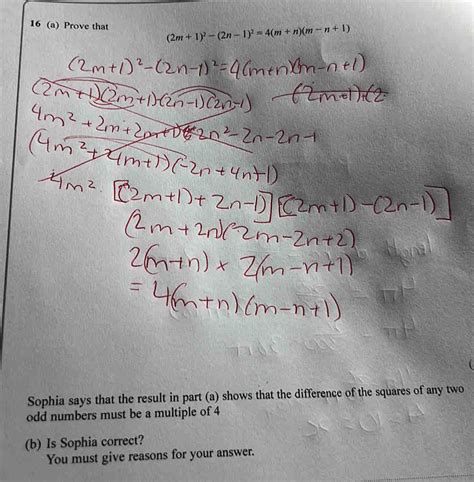 16 (a) Prove that
(2m + 1)² – (2n – 1)² = 4(m + n)(m – n + 1)
(2m+1)²-(2n-1)²=4(m+n)(m-n+1)
(2m+1)(2m+1)-(2n-1)(2n-1) (2m+1)+(2
4m²+2m+2m+1 2n²-2n-2n-1
(4m²+4m+1)(-2n+4n+1)
4m².
[(2m+1)+2n-1)][(2m+1)-(2n-1)]
(2m+2n)(2m-2n+2)
2(m+n) × 2(m-n+1)
= 4(m+n)(m-n+1)
Sophia says that the result in part (a) shows that the difference of the squares of any two
odd numbers must be a multiple of 4
(b) Is Sophia correct?
You must give reasons for your answer.